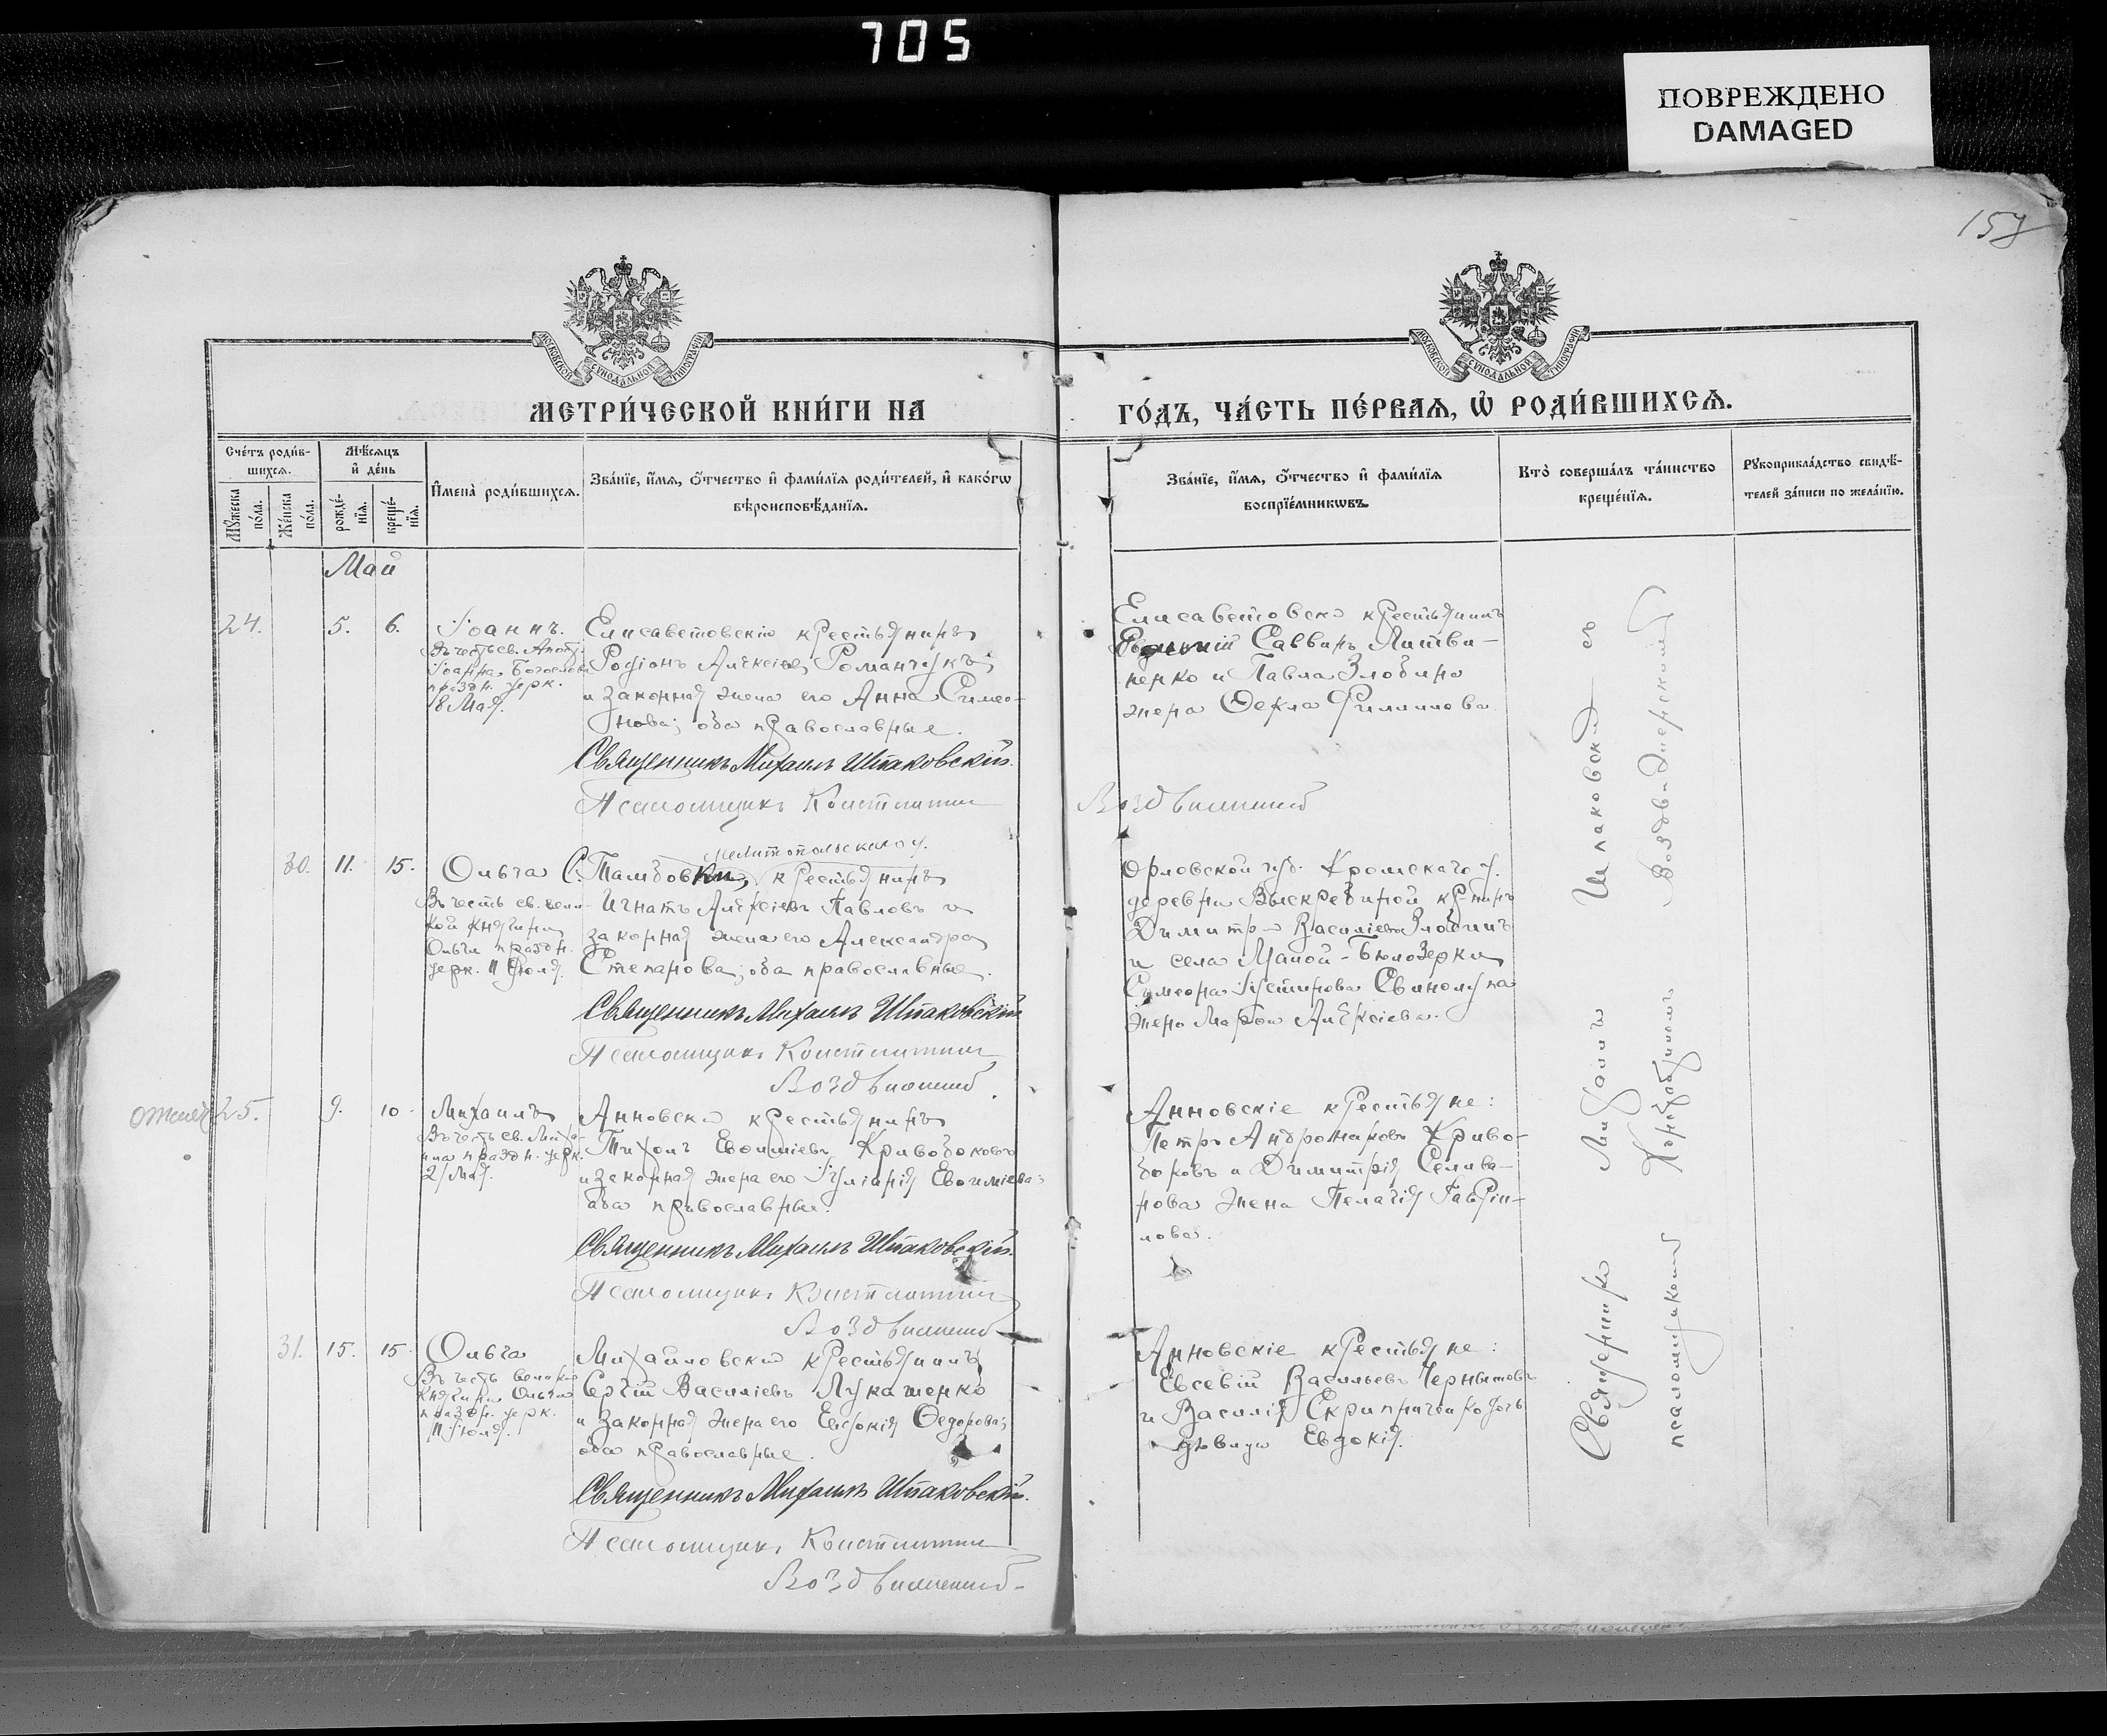 705
ПОВРЕЖДЕНО
DAMAGED
157
МОСКОВСКОЙ СѴНОДАЛЬНОЙ ТИПОГРАФІИ
МОСКОВСКОЙ СѴНОДАЛЬНОЙ ТИПОГРАФІИ
МЕТРИ́ЧЕСКОЙ КНИ́ГИ НА
ГО́ДЪ, ЧА́СТЬ ПЕ́РВАѦ, Ѡ҆ РОДИ́ВШИХСѦ.
Сче́тъ роди́в-
шихсѧ.
Мѣ́сѧцъ
и҆ де́нь
Мꙋ́жеска
по́ла.
Же́нска
по́ла.
рожде́-
нїѧ.
креще́-
нїѧ.
И҆мена̀ роди́вшихсѧ.
Зва́нїе, и҆́мѧ, ѻ҆́тчество и҆ фами́лїѧ роди́телей, и҆ како́гѡ
вѣроисповѣ́данїѧ.
Зва́нїе, и҆́мѧ, ѻ҆́тчество и҆ фами́лїѧ
воспрїе́мникѡвъ.
Кто̀ соверша́лъ та́инство
креще́нїѧ.
Рꙋкоприкла́дство свидѣ́-
телей за́писи по жела́нїю.
Май
24.
5.
6.
Іоаннъ.
Въ честь св. Апост.
Іоанна Богослова
праздн. церк.
8 Мая.
Елисаветовскій крестьянинъ
Родіонъ Алексіевъ Романчукъ
и законная жена его Анна Симео-
нова; оба православные.
Священникъ Михаилъ Шпаковскій.
Псаломщикъ Константинъ
Воздвиженскій
Елисаветовскій крестьянинъ
Саввинъ Литви-
ненко и Павла Злобина
жена Ѳекла Филиппова.
30.
11.
15.
Ольга
Въ честь св. вели-
кой княгини
Ольги праздн.
церк. 11 Іюля.
Мелитопольскаго у.
С. Тамбовки, крестьянинъ
Игнатъ Алексіевъ Павловъ и
законная жена его Александра
Степанова; оба православные.
Священникъ Михаилъ Шпаковскій
Псаломщикъ Константинъ
Воздвиженскій
Орловской губ. Кромскаго у.
деревни Выскребиной кр-нинъ
Димитрій Василіевъ Злобинъ
и села Малой-Бѣлозерки
Симеона Іустинова Свинолупа
жена Марѳа Алексіева.
отмеч
25.
9.
10
Михаилъ
Въ честь св. Миха-
ила праздн. церк.
21 Мая.
Анновскій крестьянинъ
Тихонъ Евѳиміевъ Кривобоковъ
и законная жена его Іуліанія Евѳиміева;
оба православные.
Священникъ Михаилъ Шпаковскій.
Псаломщикъ Константинъ
Воздвиженскій
Анновскіе крестьяне:
Петръ Андрониковъ Криво-
боковъ и Димитрія Селива-
нова жена Пелагія Гаврі-
лова.
31.
15.
15
Ольга
Въ честь великой
княгини Ольги
праздн. церк.
11 Іюля.
Михайловскій крестьянинъ
Сергій Василіевъ Лукашенко
и законная жена его Евдокія Ѳедорова;
оба православные.
Священникъ Михаилъ Шпаковскій.
Псаломщикъ Константинъ
Воздвиженскій
Анновскіе крестьяне:
Евсевій Васильевъ Чернышовъ
и Василія Скрипниченко дочь
дѣвица Евдокія.
Священникъ Михаилъ Шпаковскій съ
псаломщикомъ Воздвиженскимъ